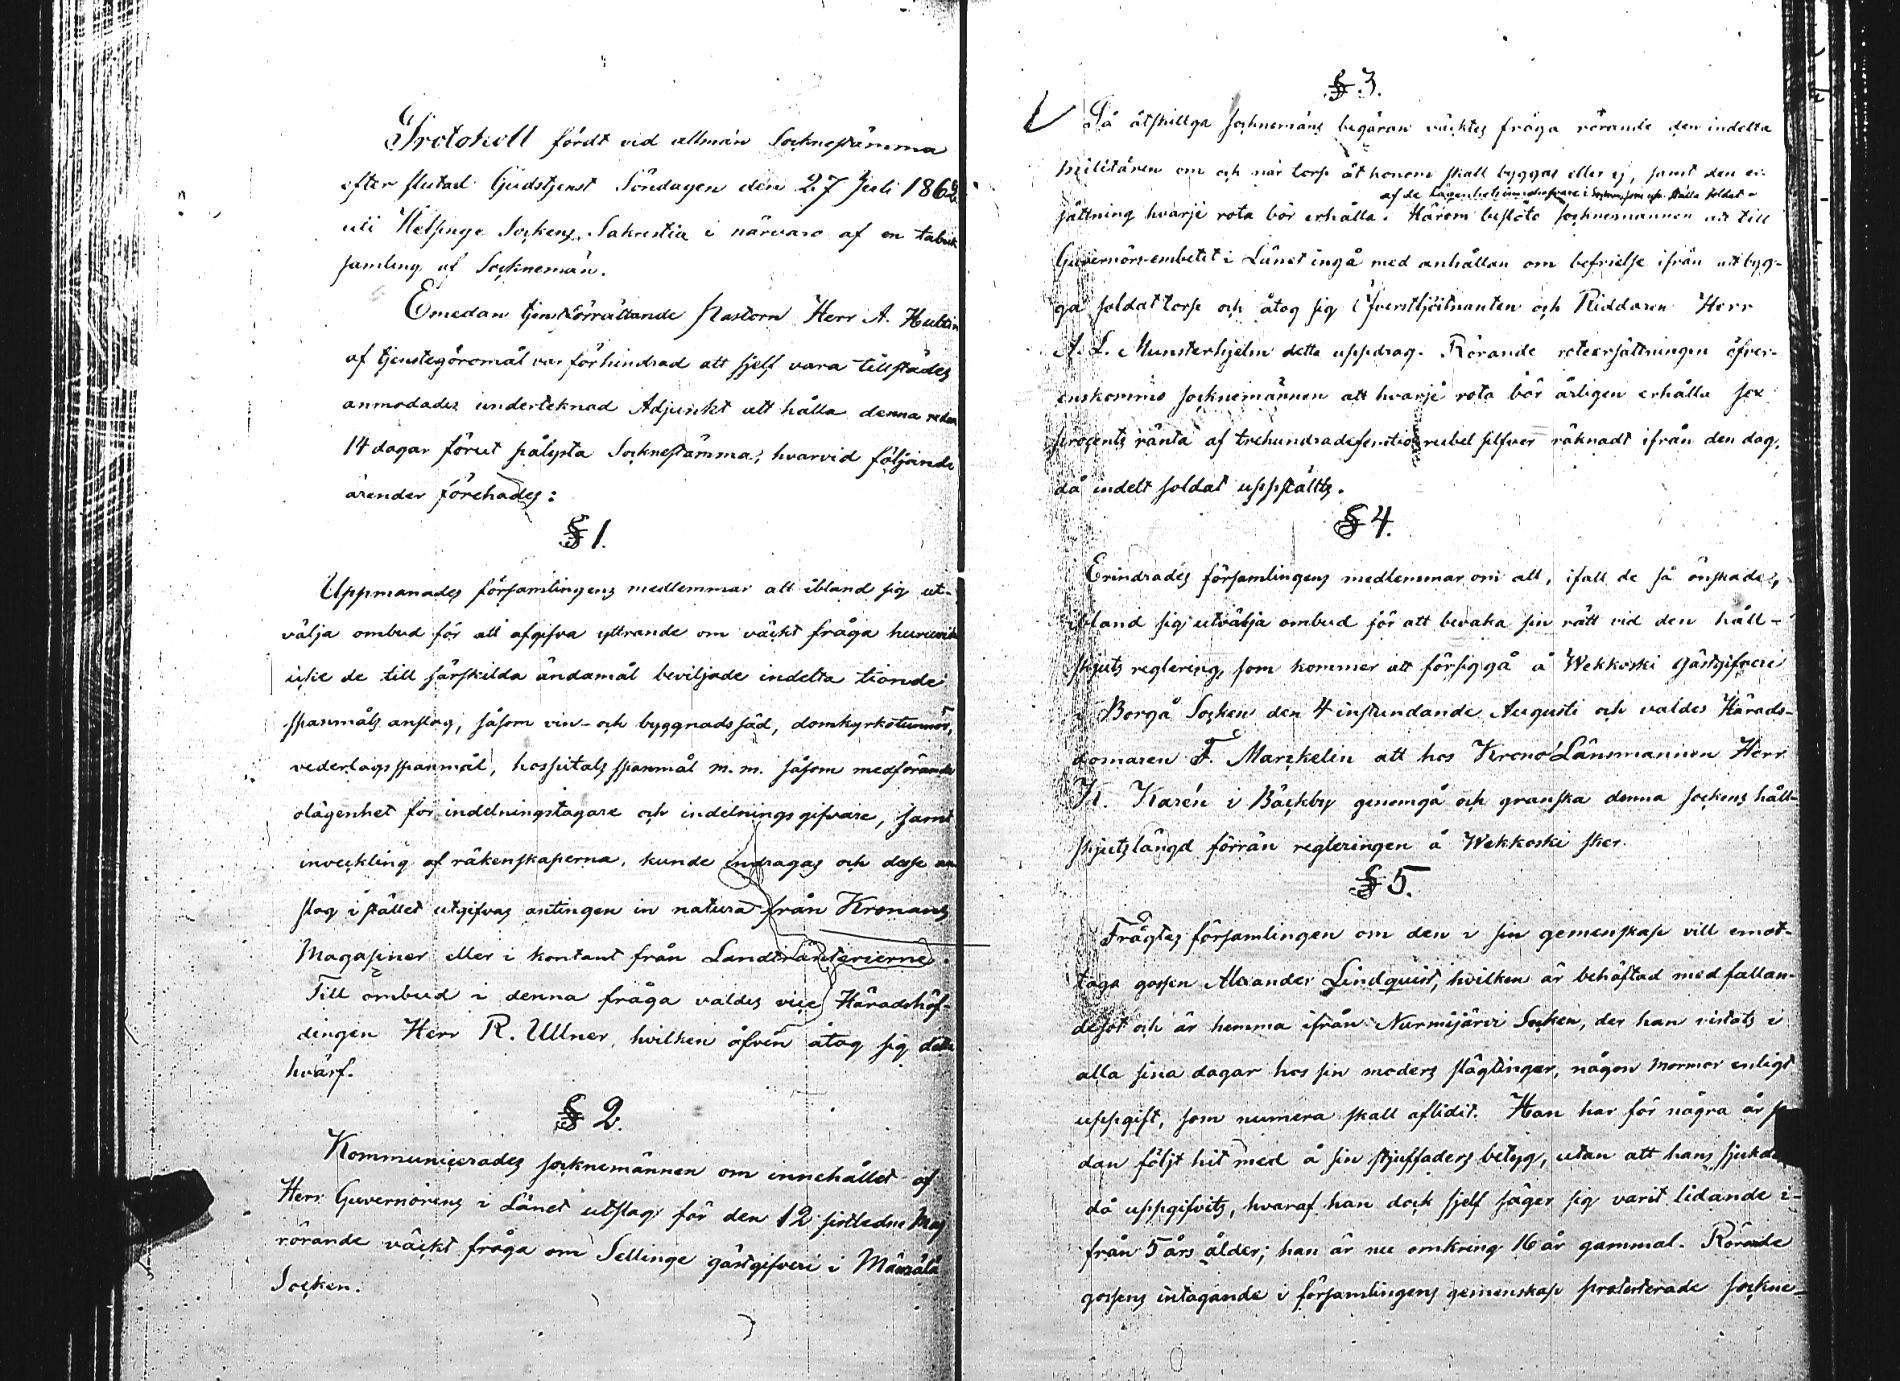 Protokoll fördt vid allmän Socknestämma
efter slutad Gudstjenst Söndagen den 27 Juli 1862
uti Helsinge Sockens Sakristia i närvaro af en talrik
samling af Socknemän.
Emedan tjenstförrättande Pastorn Herr A. Hultin
af tjenstegöromål var förhindrad att sjelf vara tillstädes
anmodades undertecknad Adjunkt att hålla denna redan
14 dagar förut pålysta Socknestämma, hvarvid följande
ärender förehades:
§ 1.
Uppmanades församlingens medlemmar att ibland sig ut-
välja ombud för att afgifva yttrande om väckt fråga huruvida
icke de till särskilda ändamål beviljade indelta tionde
spanmåls anslag, såsom vin- och byggnads säd, domkyrkotunnor,
vederlagsspanmål, hospitals spanmål m.m. såsom medförande
olägenhet för indelningstagare och indelnings gifvare, samt
inveckling af räkenskaperna, kunde indragas och desse an-
slag i stället utgifvas antingen in natura från Kronans
Magasiner eller i kontant från Landtränterierne.
Till ombud i denna fråga valdes vice Häradshöf-
dingen Herr R. Ullner, hvilken äfven åtog sig detta
hvarf.
§ 2.
Kommunicerades socknemännen om innehållet af
Herr Guvernörens i Länet utslag för den 12 sistledne Maj
rörande väckt fråga om Sellinge gästgifveri i Mäntsälä
Socken.
§ 3.
På åtskillga Socknemäns begäran väcktes fråga rörande den indelta
militären om och när torp åt honom skall byggas eller ej, samt den er-
af de Lägenhetsinnehafvare i Socknen, som ej ställa soldat
sättning hvarje rota bör erhålla. Härom beslöto socknemännen att till
Guvernörs-embetet i Länet ingå med anhållan om befrielse ifrån att byg-
ga soldattorp och åtog sig Öfverstlöitnanten och Riddaren Herr
A. L. Munsterhjelm detta uppdrag. Rörande roteersättningen öfver-
enskommo socknemännen att hvarje rota bör årligen erhålla sex
procents ränta af trehundradefemtio rubel silfver räknadt ifrån den dag,
då indelt soldat uppställts.
§ 4.
Erindrades församlingens medlemmar om att, ifall de så önskade,
ibland sig utvälja ombud för att bevaka sin rätt vid den håll-
skjuts reglering, som kommer att försiggå å Wekkoski gästgifveri
i Borgå Socken den 4 instundande Augusti och valdes Härads-
domaren F. Marckelin att hos Krono Länsmannen Herr
K. Karén i Bäckby genomgå och granska denna sockens håll-
skjutslängd förrän regleringen å Wekkoski sker.
§ 5.
Frågtes församlingen om den i sin gemenskap vill emot-
taga gossen Alexander Lindquist, hvilken är behäftad med fallan-
desot och är hemma ifrån Nurmijärvi Socken, der han vistats i
alla sina dagar hos sin moders släktingar, någon mormor enligt
uppgift, som numera skall aflidit. Han har för några år se-
dan följt hit med å sin stjuffaders betyg, utan att hans sjukdom
då uppgifvits, hvaraf han dock sjelf säger sig varit lidande i-
från 5 års ålder; han är nu omkring 16 år gammal. Rörande
gossens intagande i församlingens gemenskap protesterade sockne-